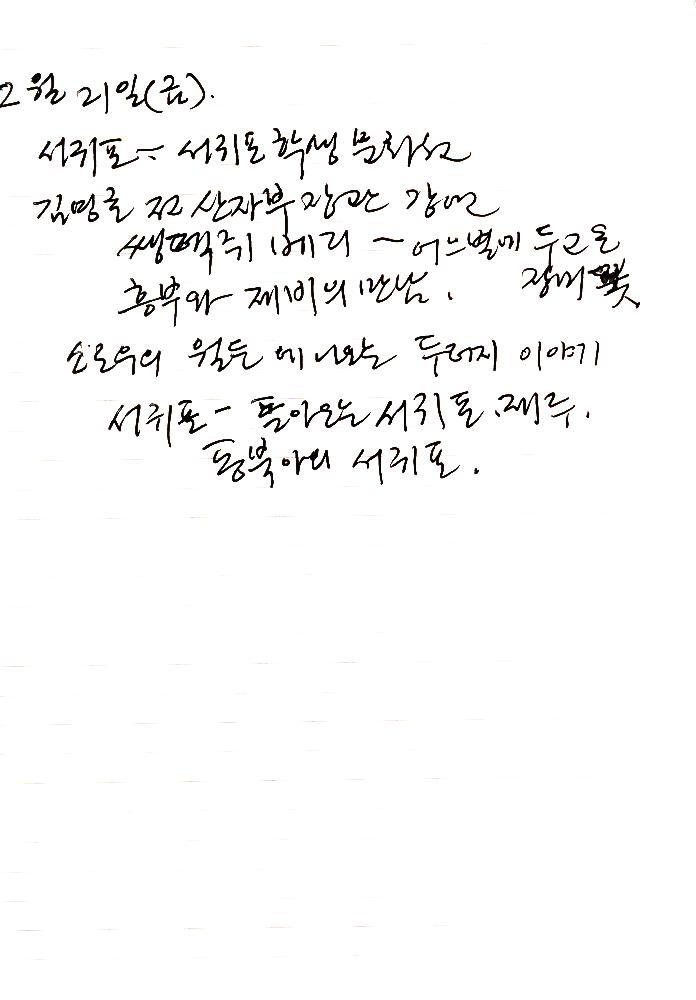 2월 21일(금).
서귀포~ 서귀포학생문화원
김영호 전 산자부장관 강연
쌩떽쥐베리 ~ 어느별에 두고온
장미꽃
흥부와 제비의 만남.
소로우의 월든에 나오는 두더지 이야기
서귀포 - 돌아오는 서귀포. 제주.
동북아의 서귀포.